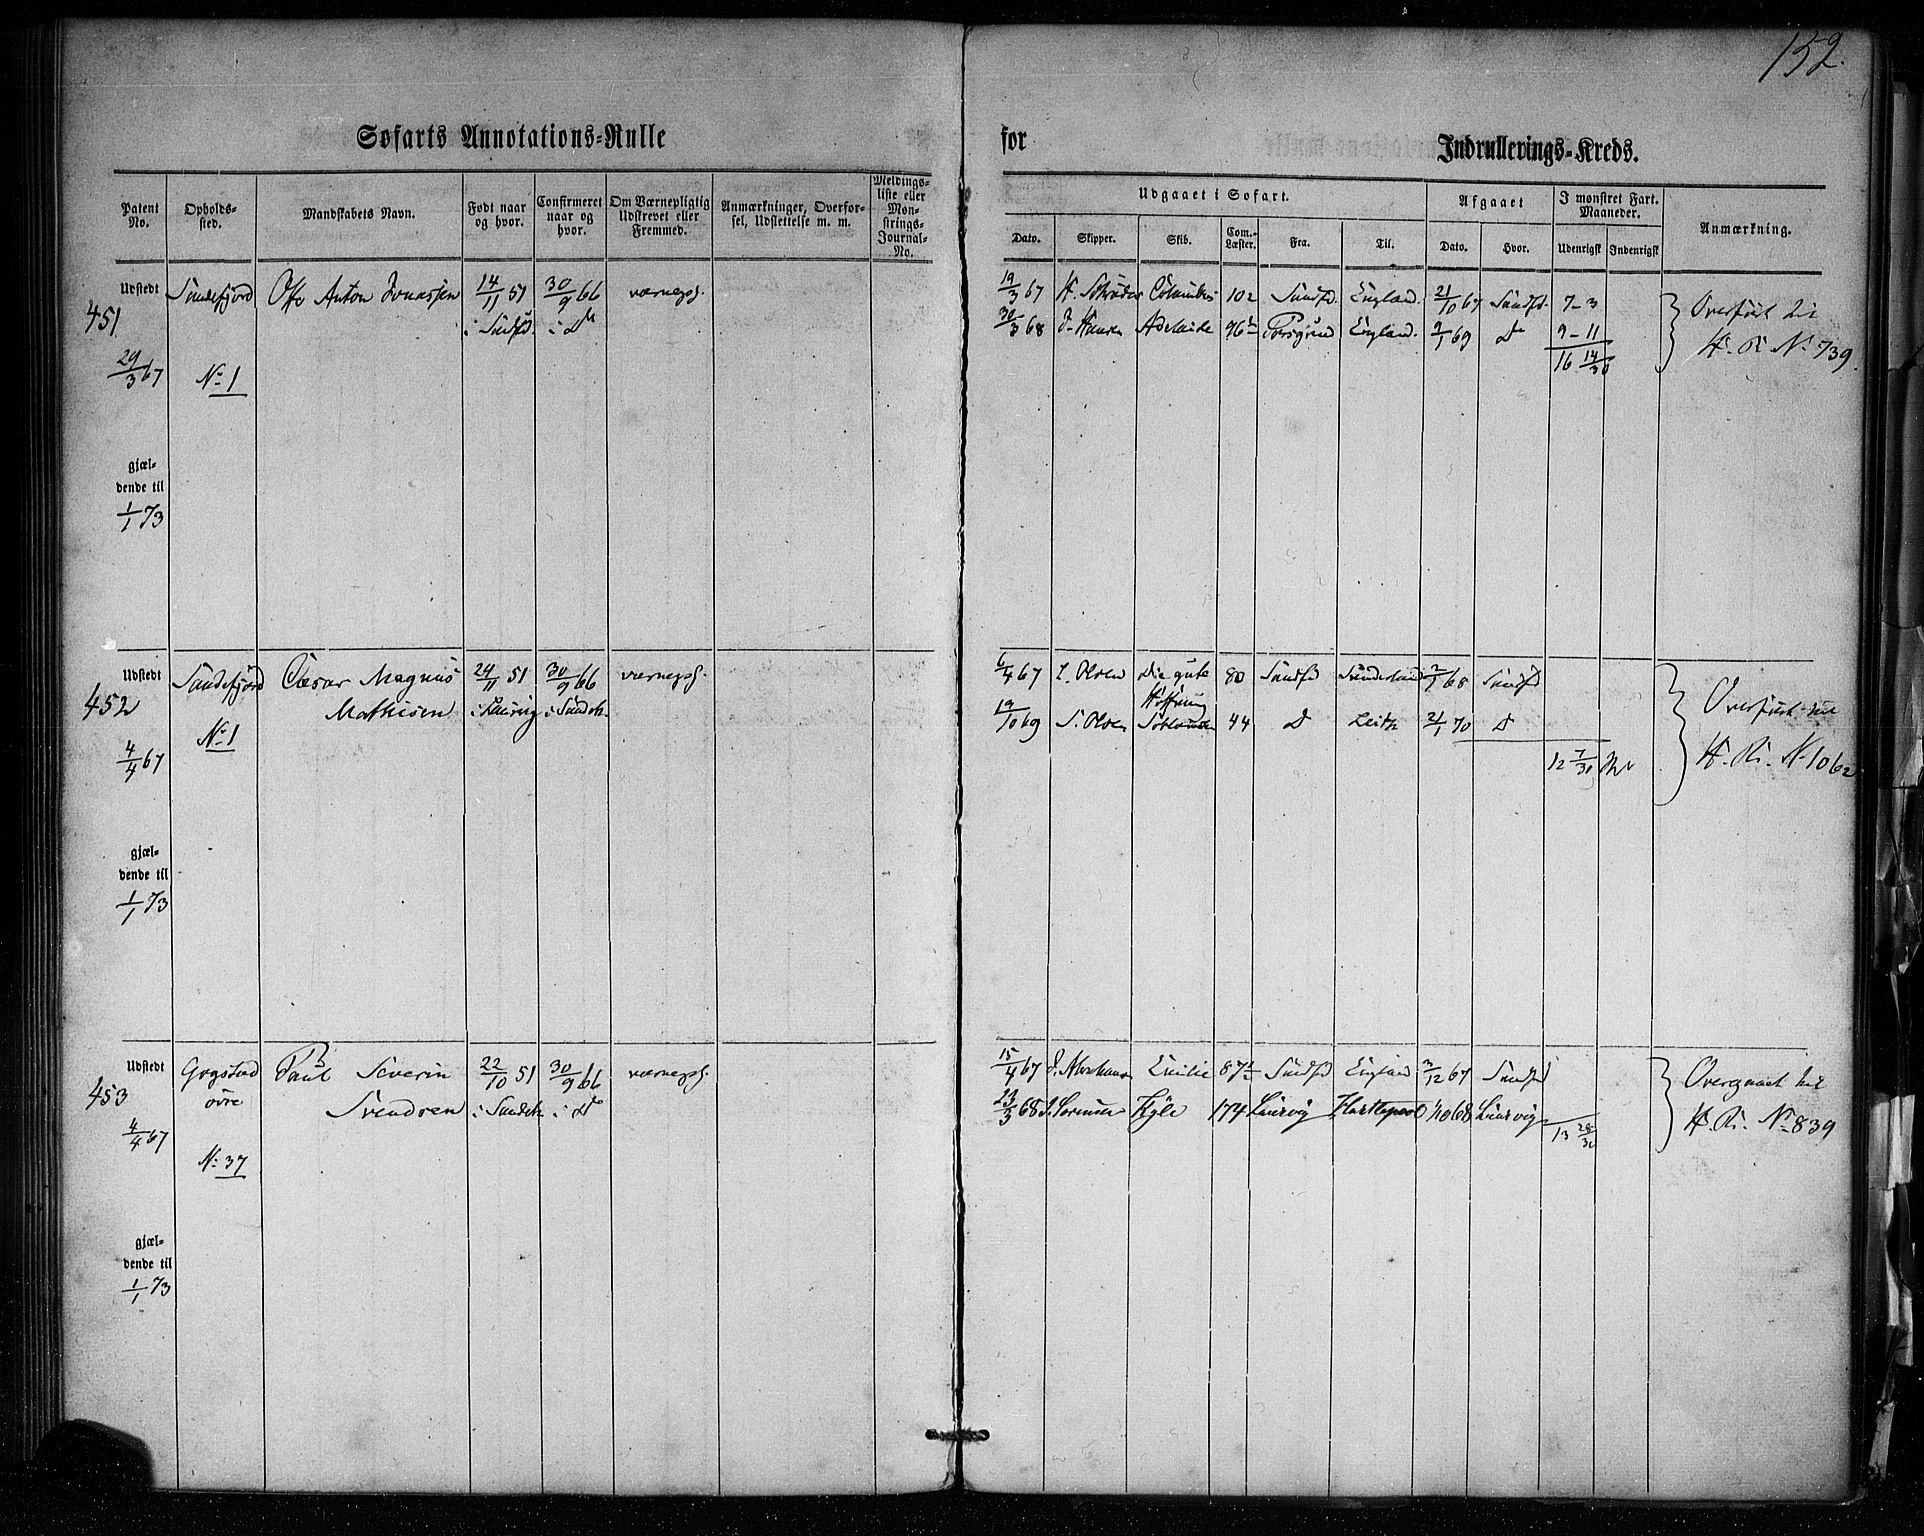 152.
Søfarts Annotations-Rulle for Indrullerings-Kreds.
Patent No. Opholds-sted. Mandskabets Navn. Født naar og hvor. Confirmeret naar og hvor. Om Værnepligtig Udskrevet eller Fremmed. Anmærkninger, Overførsel, Udslettelse m. m. Meldings-liste eller Mønstrings-Journal-No.
Udgaaet i Søfart. Afgaaet I mønstret Fart. Maaneder. Anmærkning.
Dato. Skipper. Skib. Com.-Læster. Fra. Til. Dato. Hvor. Udenrigsk Indenrigsk
Udstedt Sandefjord Otto Anton Jonassen 14/11 51 30/9 66 værnepl. 19/3 67 H. Schrøder Columbus 102 Sandfd. England. 21/10 67 Sandfd. 7-3 Overført til
451 i Sandfd. i Do 30/3 68 J. Hansen Adelaide 96½ Porsgrund England. 9/1 69 Do 9-11
29/3 67 No 1 16 14/30 H. R. No 739.
gjæl-
dende til
1/1 73
Udstedt Sandefjord Cæsar Magnus 24/11 51 30/9 66 værnepl. 6/4 67 L. Olsen Die gute 80 Sandfd Sunderland 2/1 68 Sandfd
452 Mathisen i Laurvig i Sandeh. Hoffnung Overført til
No 1 19/10 69 S. Olsen 44 Do Leith 21/1 70 Do
4/4 67 12 7/30 H. R. No 1062
gjæl-
dende til
1/1 73
Udstedt Gogstad Paul Severin 22/10 51 30/9 66 værnepl. 15/4 67 J. Abrahamsen Emilie 87½ Sandfd England 3/12 67 Sandfd Overgaaet til
453 øvre Svendsen i Sandeh. i Do 23/3 68 S. Sørensen Kyle 174 Laurvig Hartlepool 1/10 68 Laurvig 13 28/30
4/4 67 H. R. No 839
No 37
gjæl-
dende til
1/1 73